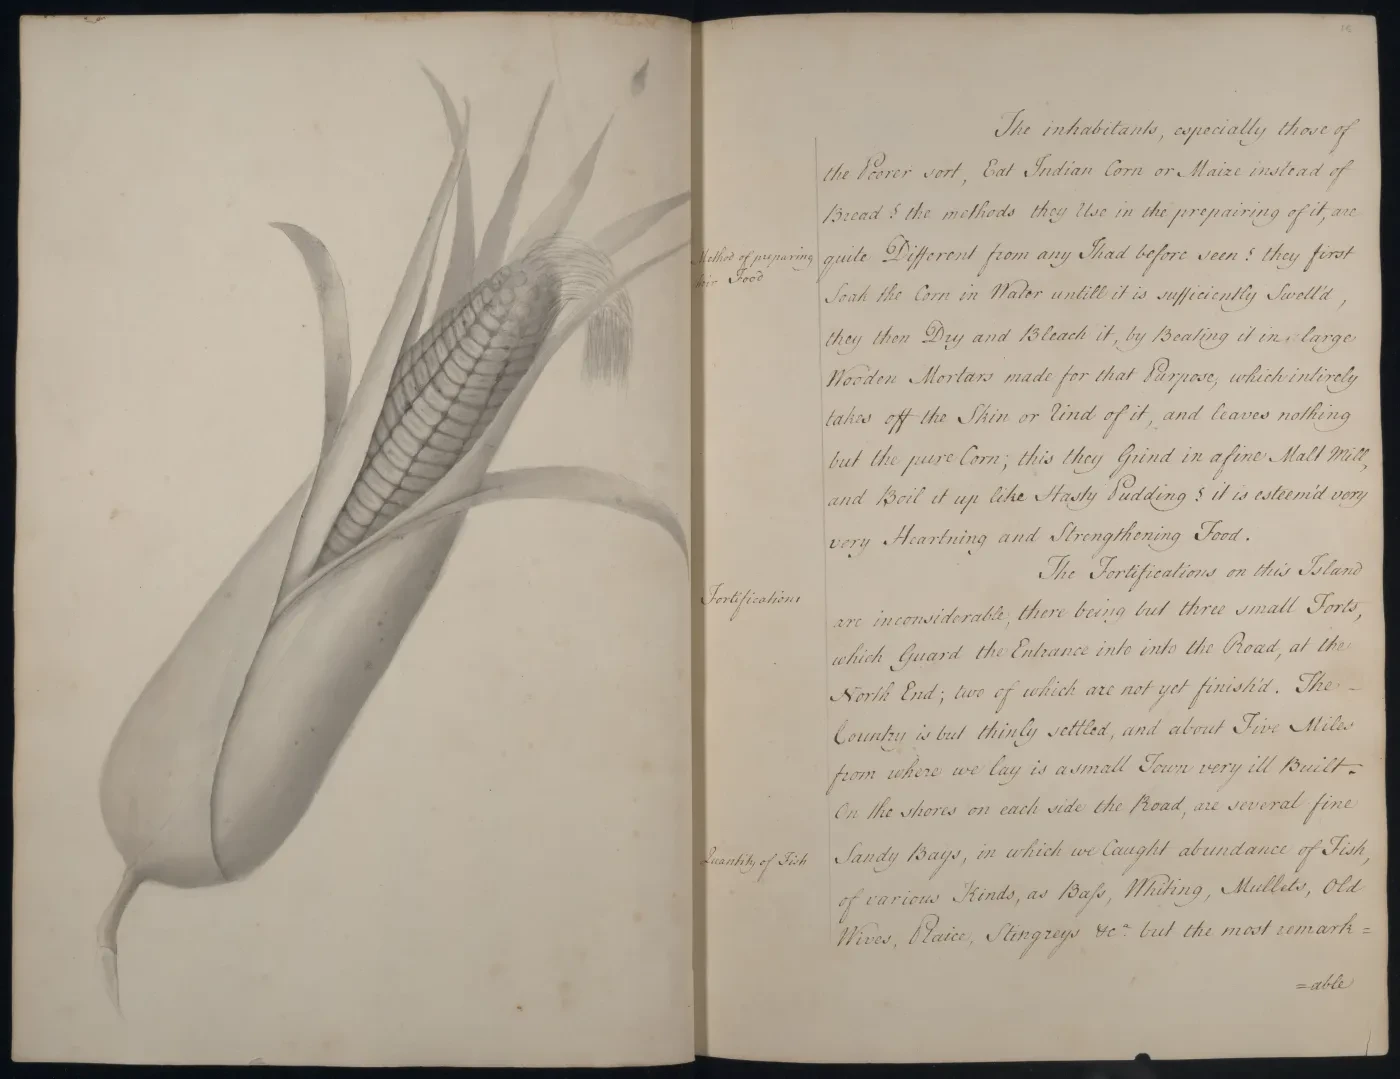 The inhabitants, especially those of
the Poorer sort, Eat Indian Corn or Maize instead of
Bread & the methods they Use in the prepairing of it, are
Method of preparing
their Food
quite Different from any I had before seen & they first
Soak the Corn in Water untill it is sufficiently Swell'd,
they then Dry and Bleach it, by Beating it in large
Wooden Mortars made for that Purpose, which intirely
takes off the Skin or Rind of it, and leaves nothing
but the pure Corn; this they Grind in a fine Malt Mill,
and Boil it up like Hasty Pudding & it is esteem'd very
very Heartning and Strengthening Food.
The Fortifications on this Island
Fortifications
are inconsiderable, there being but three small Forts,
which Guard the Entrance into into the Road, at the
North End; two of which are not yet finish'd. The
Country is but thinly settled, and about Five Miles
from where we lay is a small Town very ill Built.
On the shores on each side the Road, are several fine
Quantity of Fish
Sandy Bays, in which we Caught abundance of Fish,
of various Kinds, as Baſs, Whiting, Mullets, Old
Wives, Plaice, Stingreys &c.ª but the most remark=
=able